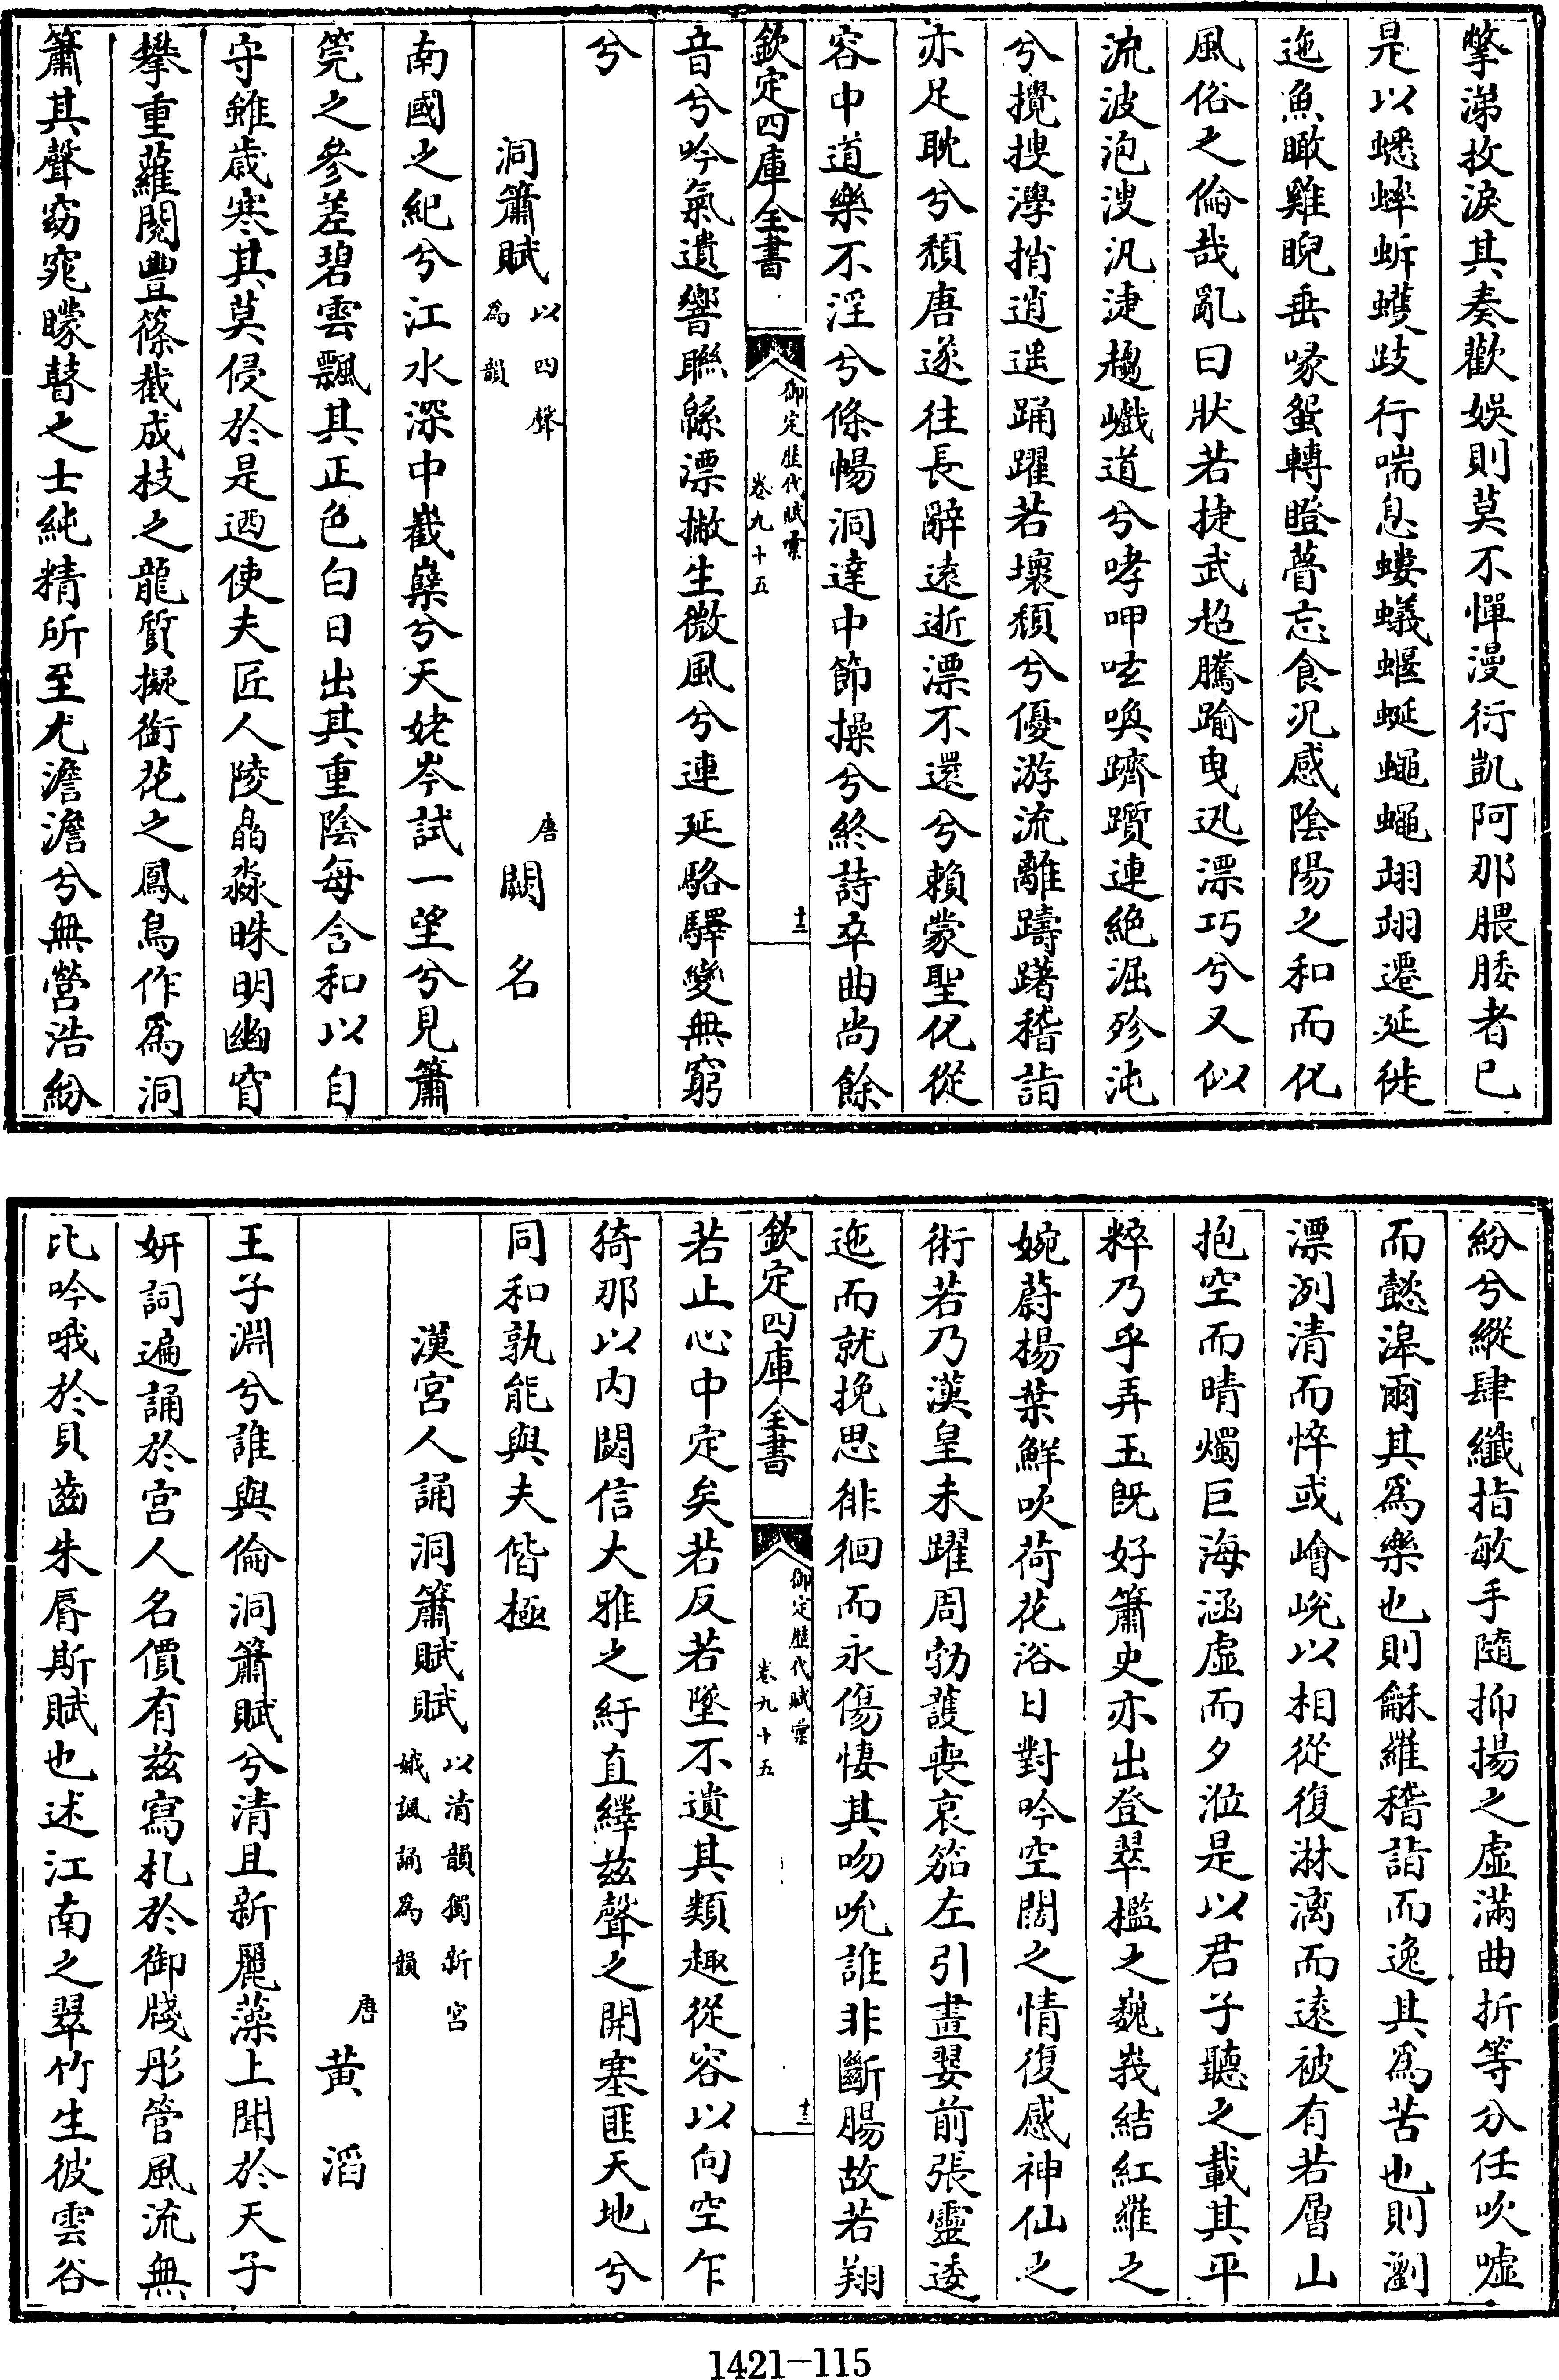 撆涕抆淚其奏歡娛則莫不憚漫衍凱阿那腲腇者已
是以蟋蟀蚸蠖跂行喘息螻蟻蝘蜒蠅蠅翊翊遷延徙
迤魚瞰雞睨垂喙蜿轉瞪瞢忘食況感陰陽之和而化
風俗之倫哉亂曰狀若捷武超騰踰曳迅漂巧兮又似
流波泡溲汎㳫趨巇道兮哮呷呟喚躋躓連絕淈殄沌
兮攪搜㶅捎逍遥踊躍若壞頽兮優游流離躊躇稽詣
亦足耽兮頽唐遂往長辭遠逝漂不還兮賴蒙聖化從
容中道樂不淫兮條暢洞達中節操兮終詩卒曲尚餘
欽定四庫全書 御定歷代賦彙 卷九十五 十二
音兮吟氣遺響聯緜漂撇生微風兮連延駱驛變無窮
兮
洞簫賦 以四聲為韻 唐 闕名
南國之紀兮江水深中巀嶪兮天姥岑試一望兮見簫
筦之參差碧雲飄其正色白日出其重陰每含和以自
守雖歲寒其莫侵於是迺使夫匠人陵皛淼昧明幽窅
攀重蘿閱豐篠截成枝之龍質擬銜花之鳳鳥作為洞
簫其聲窈窕矇瞽之士純精所至尤澹澹兮無營浩紛
紛兮縱肆纖指敏手隨抑揚之虛滿曲折等分任吹噓
而懿濞爾其為樂也則龢羅稽詣而逸其為苦也則瀏
漂洌清而悴或嶒崚以相從復淋漓而遠被有若層山
抱空而晴燭巨海涵虛而夕涖是以君子聽之載其平
粹乃乎弄玉既好簫史亦出登翠檻之巍峩結紅羅之
婉蔚揚葉鮮吹荷花浴日對吟空闊之情復感神仙之
術若乃漢皇未躍周勃護喪哀笳左引畫翣前張靈逶
迤而就挽思徘徊而永傷悽其吻吮誰非斷腸故若翔
欽定四庫全書 御定歷代賦彙 卷九十五 十三
若止心中定矣若反若墜不遺其類趣從容以向空乍
猗那以内閟信大雅之紆直繹兹聲之開塞匪天地兮
同和孰能與夫偕極
漢宮人誦洞簫賦賦 以清韻獨新宮娥諷誦為韻
唐 黄滔
王子淵兮誰與倫洞簫賦兮清且新麗藻上聞於天子
妍詞遍誦於宮人名價有兹寫札於御牋彤管風流無
比吟哦於貝齒朱脣斯賦也述江南之翠竹生彼雲谷
1421-115